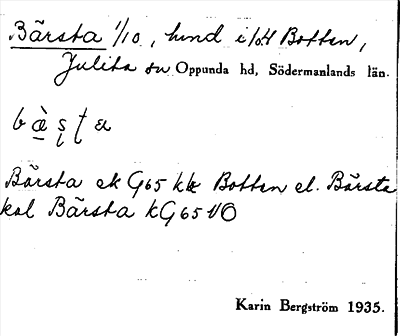 Bärsta 1/10., lund i/o.H Botten,
Julita sn Oppunda hd, Södermanlands län.
b
Bärsta ek G65 Botten el. Bärsta
kal Bärsta KG65 NO
Karin Bergström 1935.